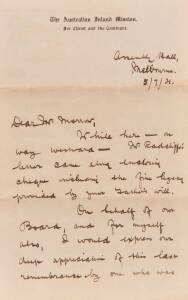 The Australian Inland Mission.
For Christ and the Continent.
Assembly Hall,
Melbourne.
5/7/21.
Dear Mr Morrow,
While here – on
way westward – Mr Radcliff's
letter came along enclosing
cheque the fine legacy
provided by your will.
On behalf of our
Board, and for myself
also, I would express our
deep appreciation of this last
remembrance by one who was